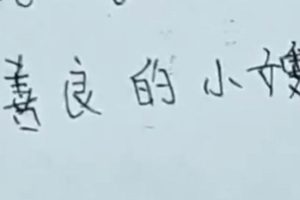 善良的小